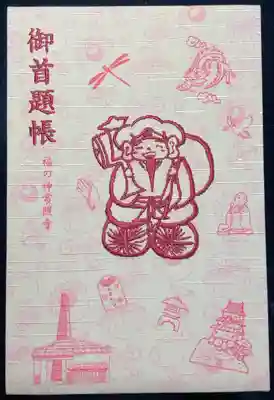 御首題帳
福の神實相寺